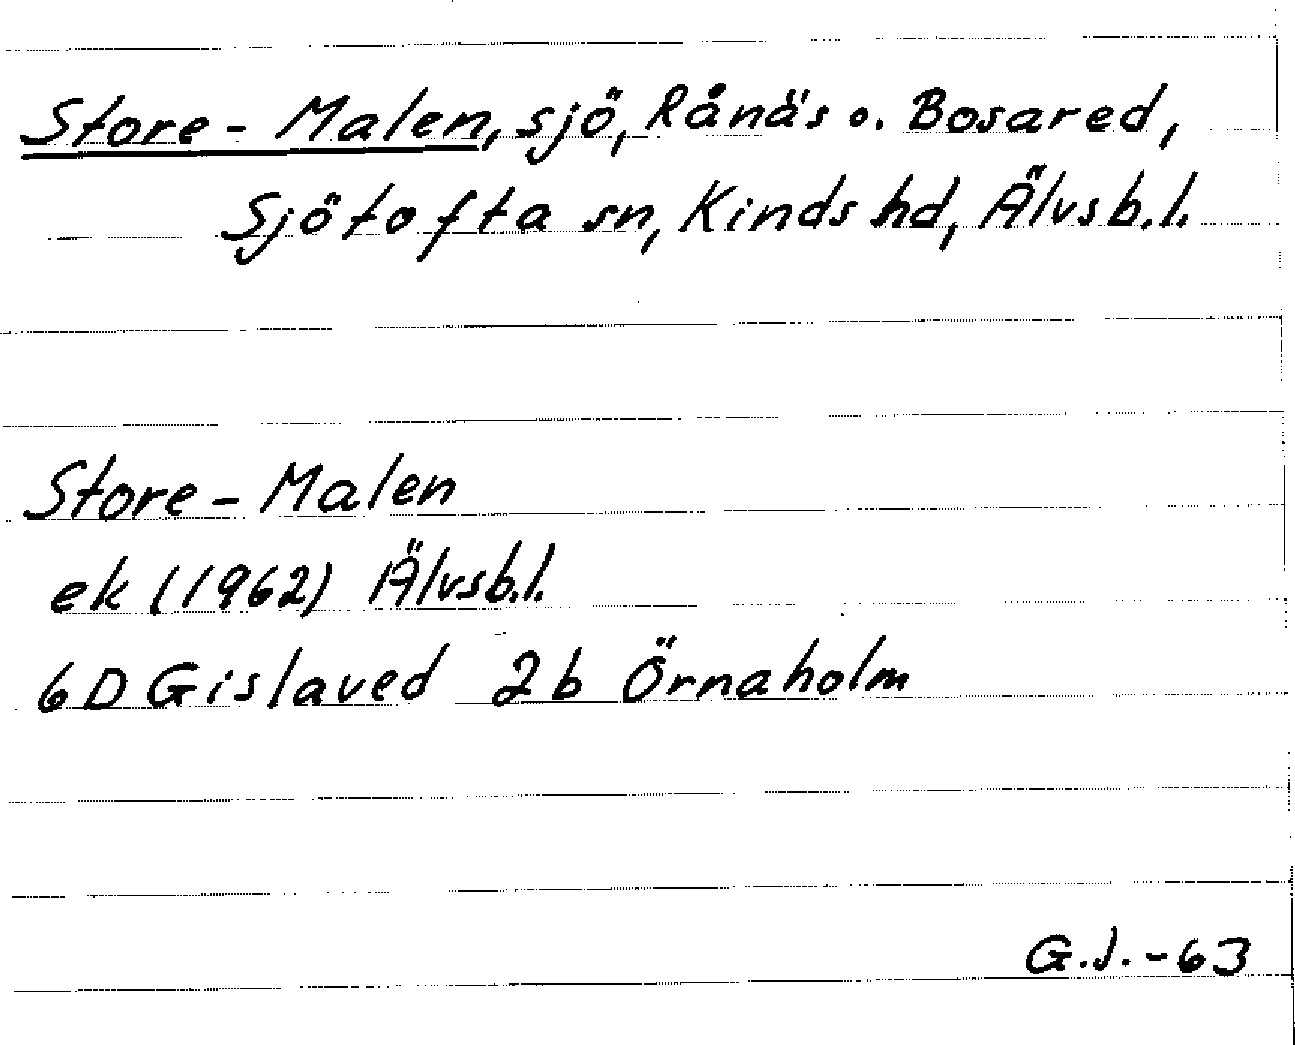 Store-Malen, sjö, Rånäs o. Bosared,
Sjötofta sn, Kinds hd, Älvsb.l.
Store-Malen
ek (1962) Älvsb.l.
6D Gislaved 2b Örnaholm
G.J.-63